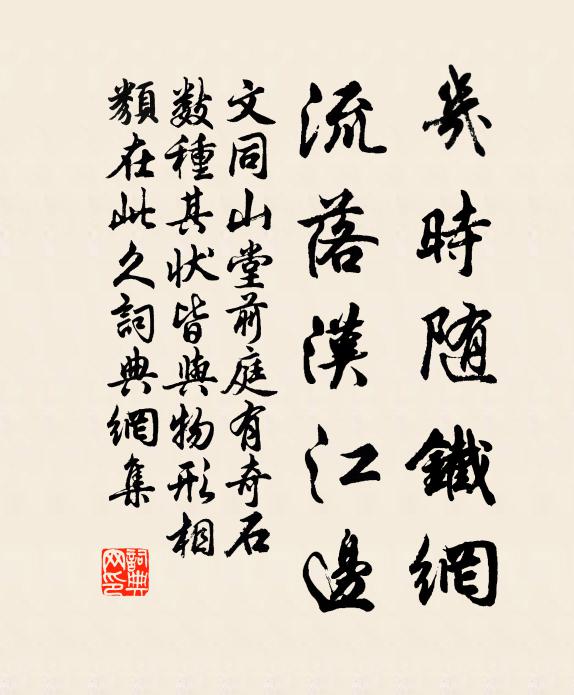 幾時随鐵網
流落漢江邊
文同山堂前庭有奇石
數種其狀皆與物形相
類在此久詞典網集
詞典網印